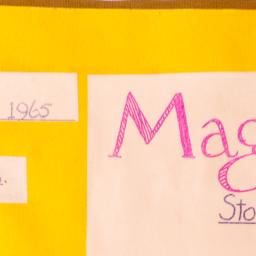 1965
Mag
Sto